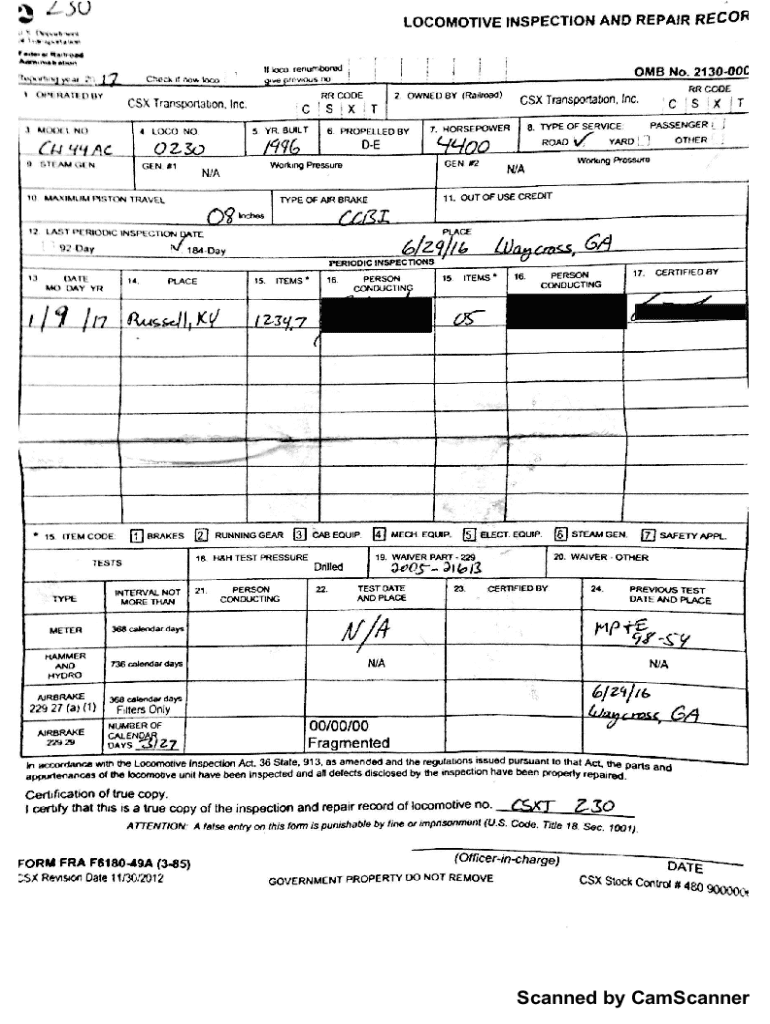 230
LOCOMOTIVE INSPECTION AND REPAIR RECOR
U.S. Department
of Transportation
Federal Railroad
Administration
Reporting year 2017 Check if new loco If loco. renumbered give previous no
OMB No. 2130-000
1 OPERATED BY CSX Transportation, Inc. RR CODE C S X T 2. OWNED BY (Railroad) CSX Transportation, Inc. RR CODE C S X T
3 MODEL NO CW44AC 4 LOCO NO. 0230 5 YR. BUILT 1996 6. PROPELLED BY D-E 7. HORSEPOWER 4400 8. TYPE OF SERVICE PASSENGER ROAD ✓ YARD OTHER
9 STEAM GEN. GEN. #1 N/A Working Pressure GEN #2 N/A Working Pressure
10 MAXIMUM PISTON TRAVEL 08 Inches TYPE OF AIR BRAKE CCBI 11. OUT OF USE CREDIT
12 LAST PERIODIC INSPECTION DATE PLACE
92-Day ✓ 184-Day 6/29/16 Waycross, GA
PERIODIC INSPECTIONS
13 DATE MO DAY YR 14. PLACE 15. ITEMS * 16. PERSON CONDUCTING 15. ITEMS * 16. PERSON CONDUCTING 17. CERTIFIED BY
1/9/17 Russell, KY 12347 05
* 15. ITEM CODE: 1 BRAKES 2 RUNNING GEAR 3 CAB EQUIP. 4 MECH. EQUIP. 5 ELECT. EQUIP. 6 STEAM GEN. 7 SAFETY APPL.
TESTS 18. H&H TEST PRESSURE Drilled 19. WAIVER PART - 229 2005-21613 20. WAIVER - OTHER
TYPE INTERVAL NOT MORE THAN 21. PERSON CONDUCTING 22. TEST DATE AND PLACE 23. CERTIFIED BY 24. PREVIOUS TEST DATE AND PLACE
METER 368 calendar days N/A MP+E 98-54
HAMMER AND HYDRO 736 calendar days N/A N/A
AIRBRAKE 229 27 (a) (1) 368 calendar days Filters Only 6/29/16 Waycross, GA
AIRBRAKE 229 29 NUMBER OF CALENDAR DAYS 3127 00/00/00 Fragmented
In accordance with the Locomotive Inspection Act, 36 State, 913, as amended and the regulations issued pursuant to that Act, the parts and
appurtenances of the locomotive unit have been inspected and all defects disclosed by the inspection have been properly repaired.
Certification of true copy.
I certify that this is a true copy of the inspection and repair record of locomotive no. CSXT 230
ATTENTION: A false entry on this form is punishable by fine or imprisonment (U.S. Code, Title 18, Sec. 1001).
(Officer-in-charge) DATE
FORM FRA F6180-49A (3-85)
CSX Revision Date 11/30/2012 GOVERNMENT PROPERTY DO NOT REMOVE CSX Stock Control # 480 900000
Scanned by CamScanner